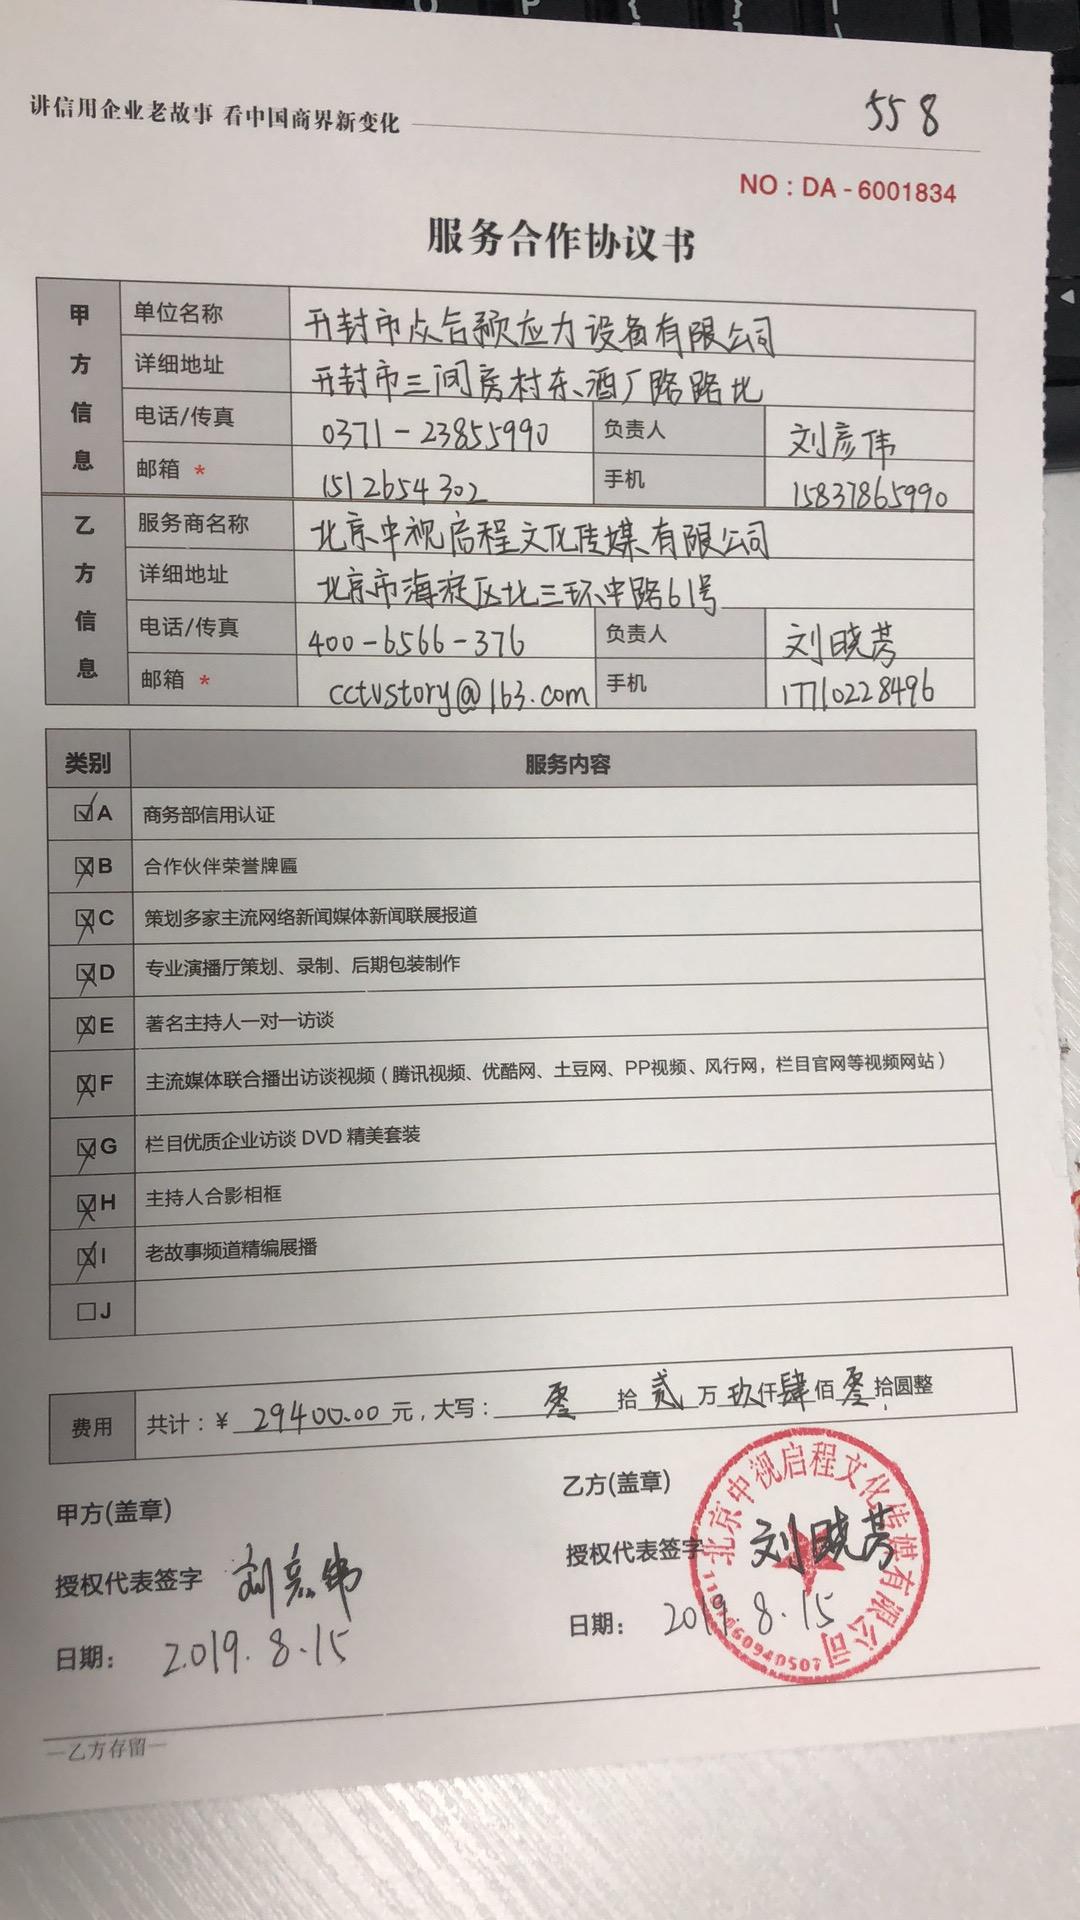 讲信用企业老故事 看中国商界新变化
558
NO：DA - 6001834
服务合作协议书
甲方信息
单位名称 开封市众合预应力设备有限公司
详细地址 开封市三间房村东、酒厂路路北
电话/传真 0371-23855990 负责人 刘彦伟
邮箱 * 1512654302 手机 15837865990
乙方信息
服务商名称 北京中视启程文化传媒有限公司
详细地址 北京市海淀区北三环中路61号
电话/传真 400-6566-376 负责人 刘晓芳
邮箱 * cctvstory@163.com 手机 17710228496
类别 服务内容
☑A 商务部信用认证
☒B 合作伙伴荣誉牌匾
☒C 策划多家主流网络新闻媒体新闻联展报道
☒D 专业演播厅策划、录制、后期包装制作
☒E 著名主持人一对一访谈
☒F 主流媒体联合播出访谈视频（腾讯视频、优酷网、土豆网、PP视频、风行网，栏目官网等视频网站）
☒G 栏目优质企业访谈 DVD 精美套装
☒H 主持人合影相框
☒I 老故事频道精编展播
☐J
费用 共计：¥ 29400.00 元，大写： 零 拾 贰 万 玖 仟 肆 佰 零 拾圆整
甲方(盖章)
乙方(盖章)
北京中视启程文化传媒有限公司
授权代表签字 刘彦伟
授权代表签字 刘晓芳
日期： 2019.8.15
日期： 2019 8.15
—乙方存留—